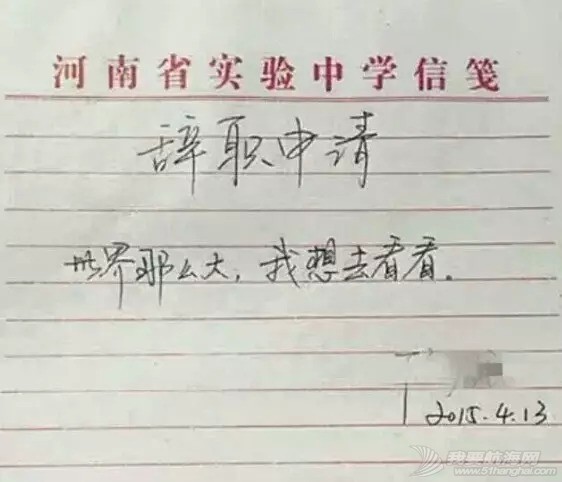 河南省实验中学信笺
辞职申请
世界那么大，我想去看看。
2015.4.13
我要航海网
www.51hanghai.com